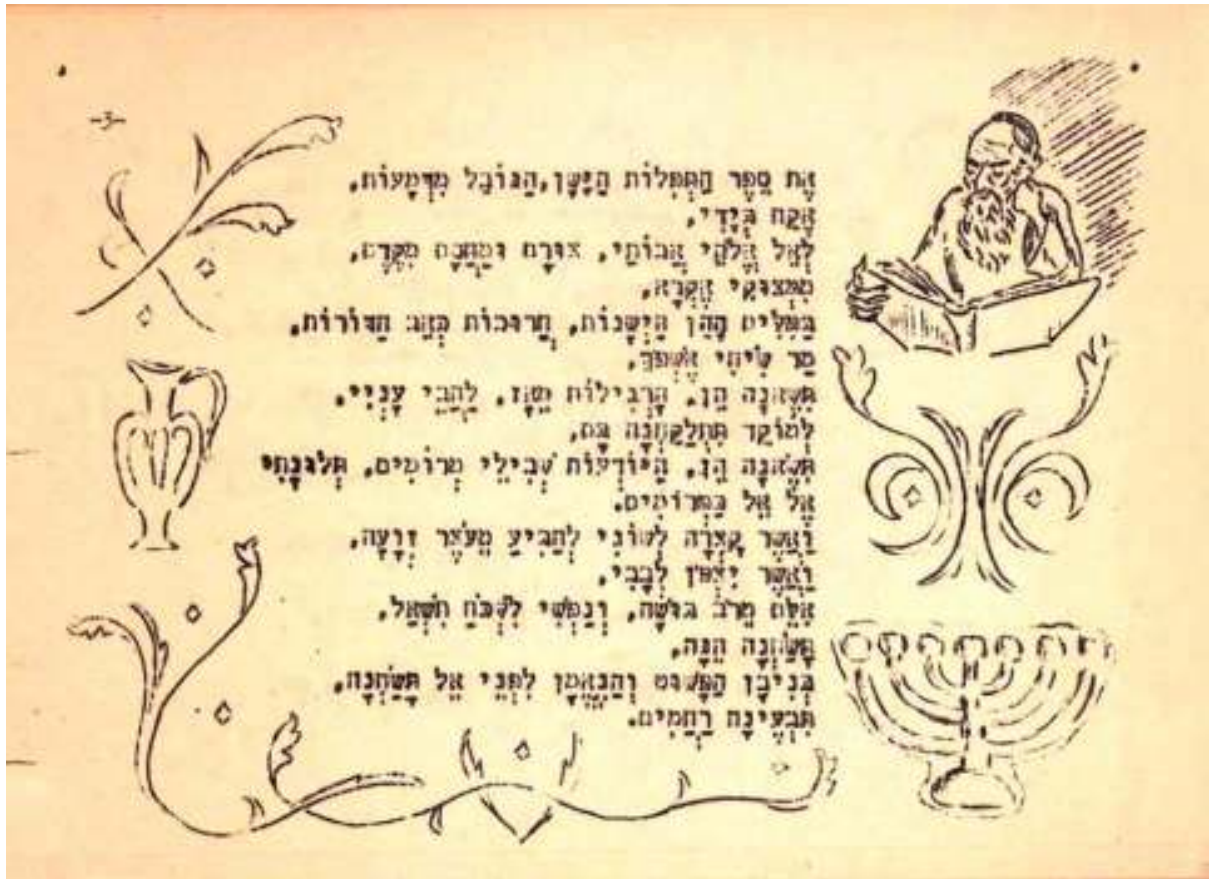 -3-
אֶת סֵפֶר הַתְּפִלּוֹת הַיָּשָׁן, הַנּוֹבֵל מִדְּמָעוֹת,
אֶקַּח בְּיָדִי,
לְאֵל אֱלֹהֵי אֲבוֹתַי, צוּרָם וּמַחֲסָם מִקֶּדֶם,
מִמְּצוּקַי אֶקְרָא,
בַּמִּלִּים הָהֵן הַיְשָׁנוֹת, חֲרוּכוֹת כְּאֵב הַדּוֹרוֹת,
מַר שִׂיחִי אֶשְׁפֹּךְ,
תִּשֶּׂאנָה הֵן, הָרְגִילוֹת מֵאָז, עָנְיִי,
לְמוֹקֵד תִּתְלַקַּחְנָה גַם,
תִּשֶּׂאנָה הֵן, הַיּוֹדְעוֹת שְׁבִילֵי מְרוֹמִים, תְּלוּנָתִי
אֶל אֵל בַּמְּרוֹמִים.
וַאֲשֶׁר קָצְרָה לְשׁוֹנִי לְהַבִּיעַ מֵעֹצֶר זְוָעָה,
וַאֲשֶׁר יִצְפֹּן לְבָבִי,
אִלֵּם מֵרֹב וְנַפְשִׁי לִשְׁכֹּחַ תִּשְׁאַל,
תָּשַׂחְנָה הֵנָּה,
בְּנִיבָן הַפָּשׁוּט וְהַנֶּאֱמָן לִפְנֵי אֵל תָּשַׂחְנָה,
תִּבְעֶינָה רַחֲמִים.